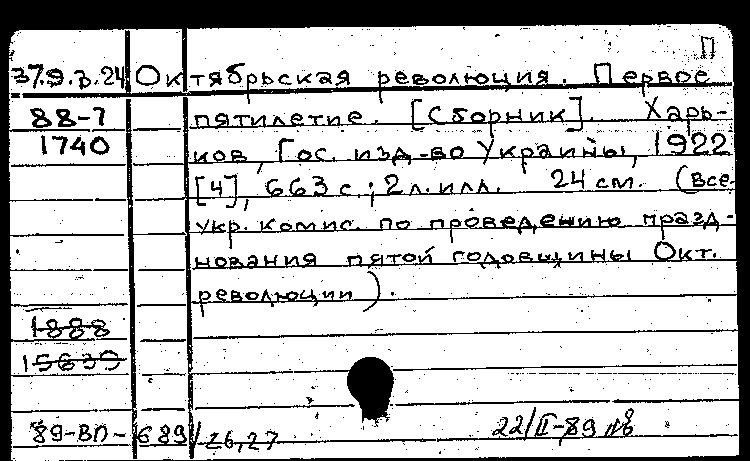 П
37.9.3.24 Октябрьская революция. Первое
88-7 пятилетие. [Сборник]. Харь-
1740 ков, Гос. изд-во Украины, 1922
[4], 663 с.; 2 л. илл. 24 см. (Все-
укр. комис. по проведению празд-
нования пятой годовщины Окт.
революции).
1888
15639
89-ВП-689/26,27 22/II-89